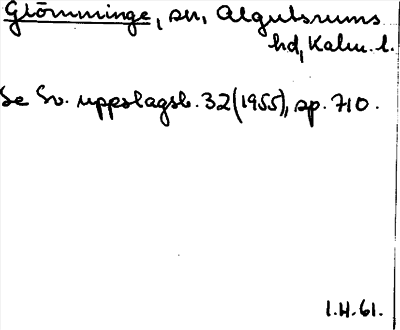 Glömminge, sn, Algutsrums
hd, Kalm. l.
Se Sv. uppslagsb. 32 (1955), sp. 710.
I.H.61.